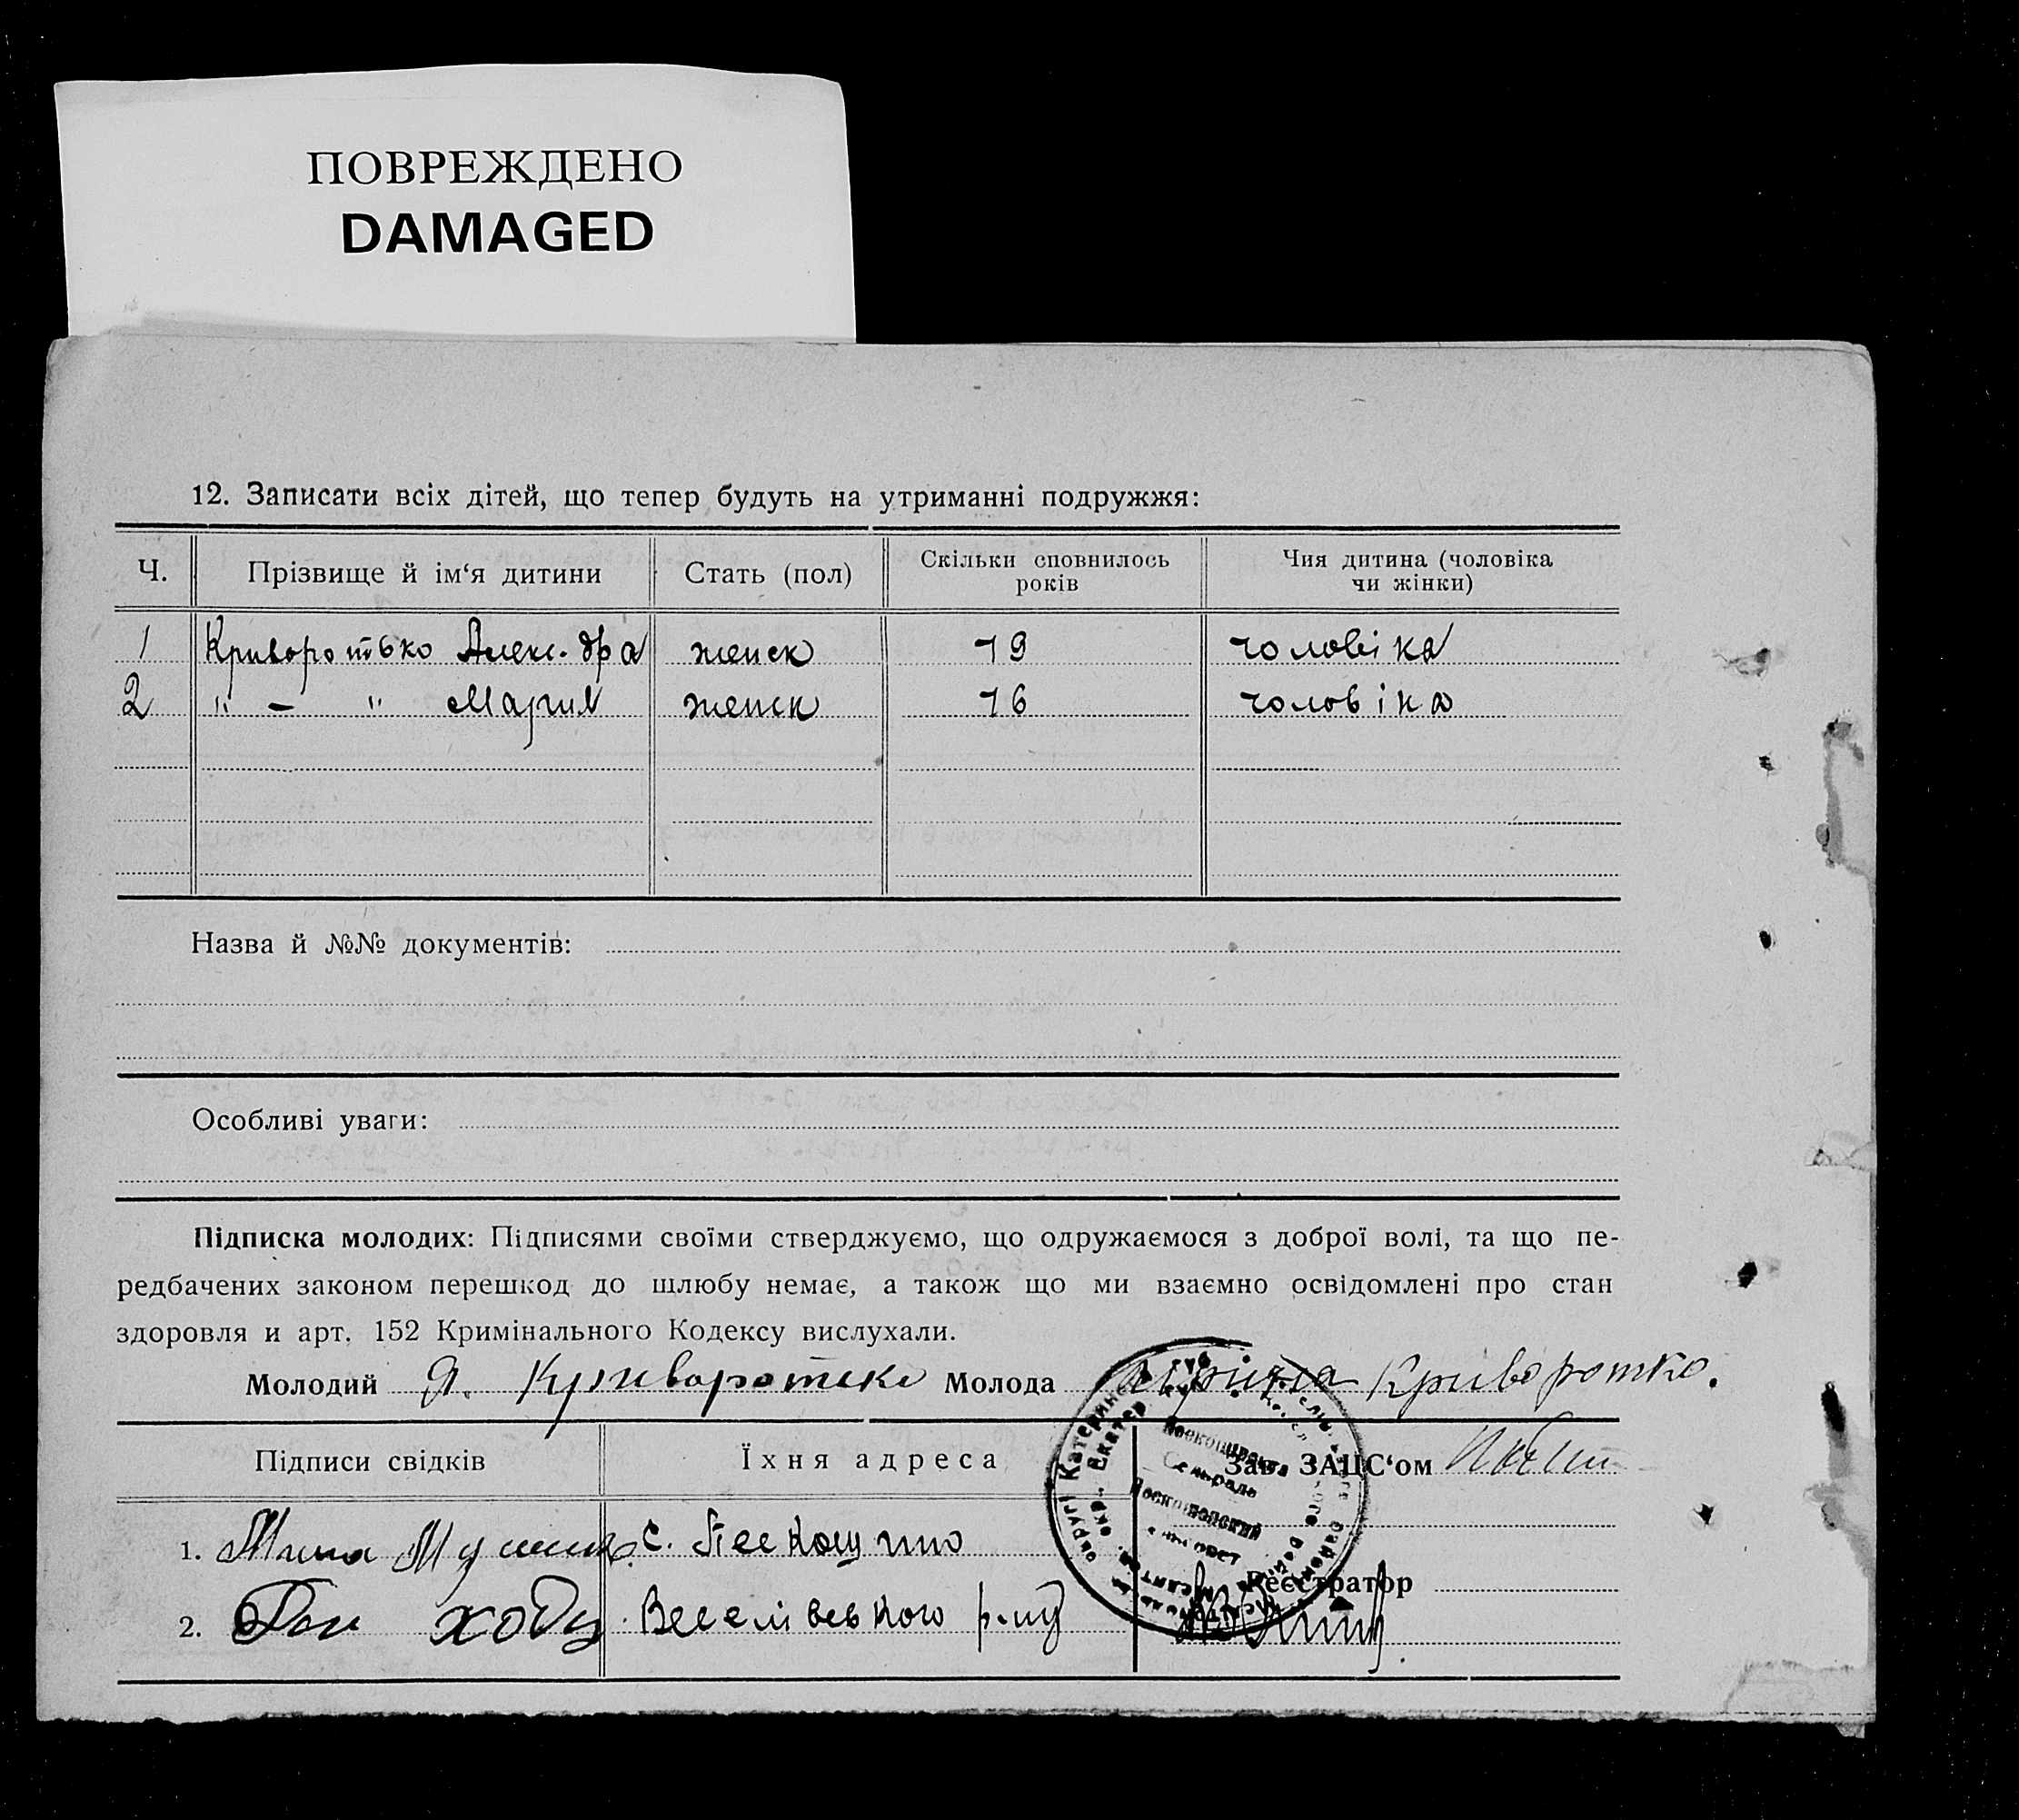 ПОВРЕЖДЕНО
DAMAGED
12. Записати всіх дітей, що тепер будуть на утриманні подружжя:
Ч. Прізвище й ім‘я дитини Стать (пол) Скільки сповнилось років Чия дитина (чоловіка чи жінки)
1 Криворотько Алекс-дра женск 19 чоловіка
2 " — " Мария женск 16 чоловіка
Назва й №№ документів:
Особливі уваги:
Підписка молодих: Підписями своїми стверджуємо, що одружаємося з доброї волі, та що пе-
редбачених законом перешкод до шлюбу немає, а також що ми взаємно освідомлені про стан
здоровля и арт. 152 Кримінального Кодексу вислухали.
Молодий Я. Криворотько Молода Криворотко.
Підписи свідків Їхня адреса Зав. ЗАЦС‘ом
1. с.
Реєстратор
2. Веселівського р-ну